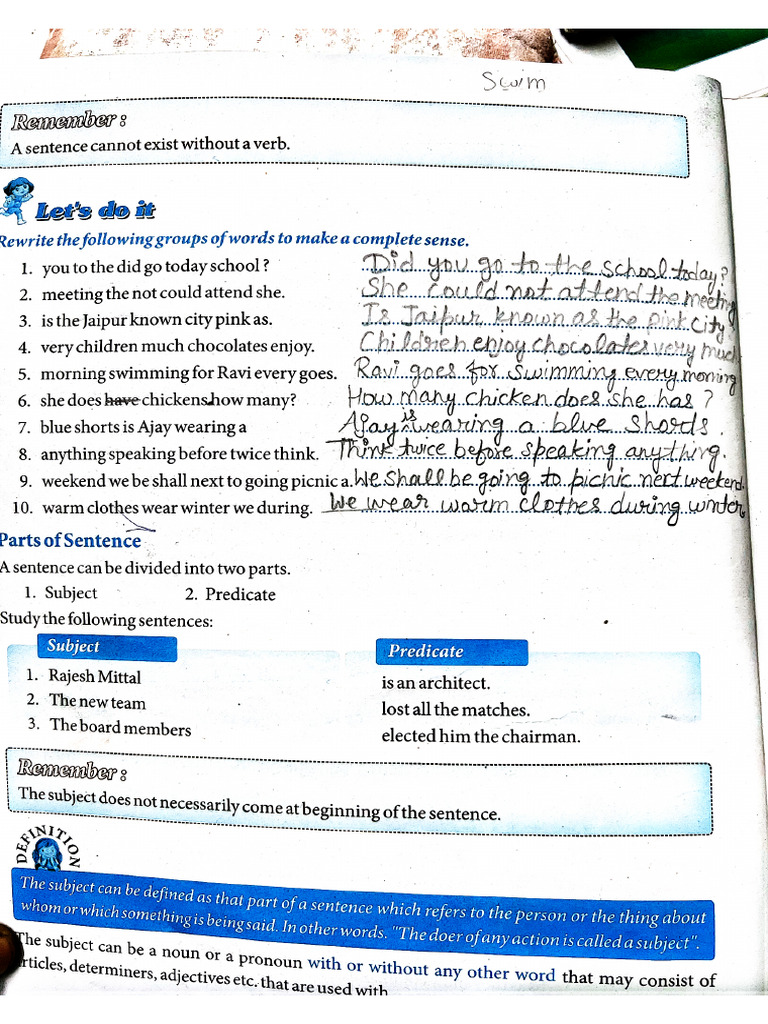 Swim
Remember :
A sentence cannot exist without a verb.
Let's do it
Rewrite the following groups of words to make a complete sense.
1. you to the did go today school ? Did you go to the school today?
2. meeting the not could attend she. She could not attend the meeting
3. is the Jaipur known city pink as. Is Jaipur known as the pink city
4. very children much chocolates enjoy. Children enjoy chocolates very much
5. morning swimming for Ravi every goes. Ravi goes for swimming every morning
6. she does have chickens how many? How many chicken does she has ?
7. blue shorts is Ajay wearing a Ajay is wearing a blue shords .
8. anything speaking before twice think. Think twice before speaking anything.
9. weekend we be shall next to going picnic a. We shall be going to picnic next weekend.
10. warm clothes wear winter we during. We wear warm clothes during winter
Parts of Sentence
A sentence can be divided into two parts.
1. Subject 2. Predicate
Study the following sentences:
Subject Predicate
1. Rajesh Mittal is an architect.
2. The new team lost all the matches.
3. The board members elected him the chairman.
Remember :
The subject does not necessarily come at beginning of the sentence.
DEFINITION
The subject can be defined as that part of a sentence which refers to the person or the thing about
whom or which something is being said. In other words. "The doer of any action is called a subject".
The subject can be a noun or a pronoun with or without any other word that may consist of
rticles, determiners, adjectives etc. that are used with